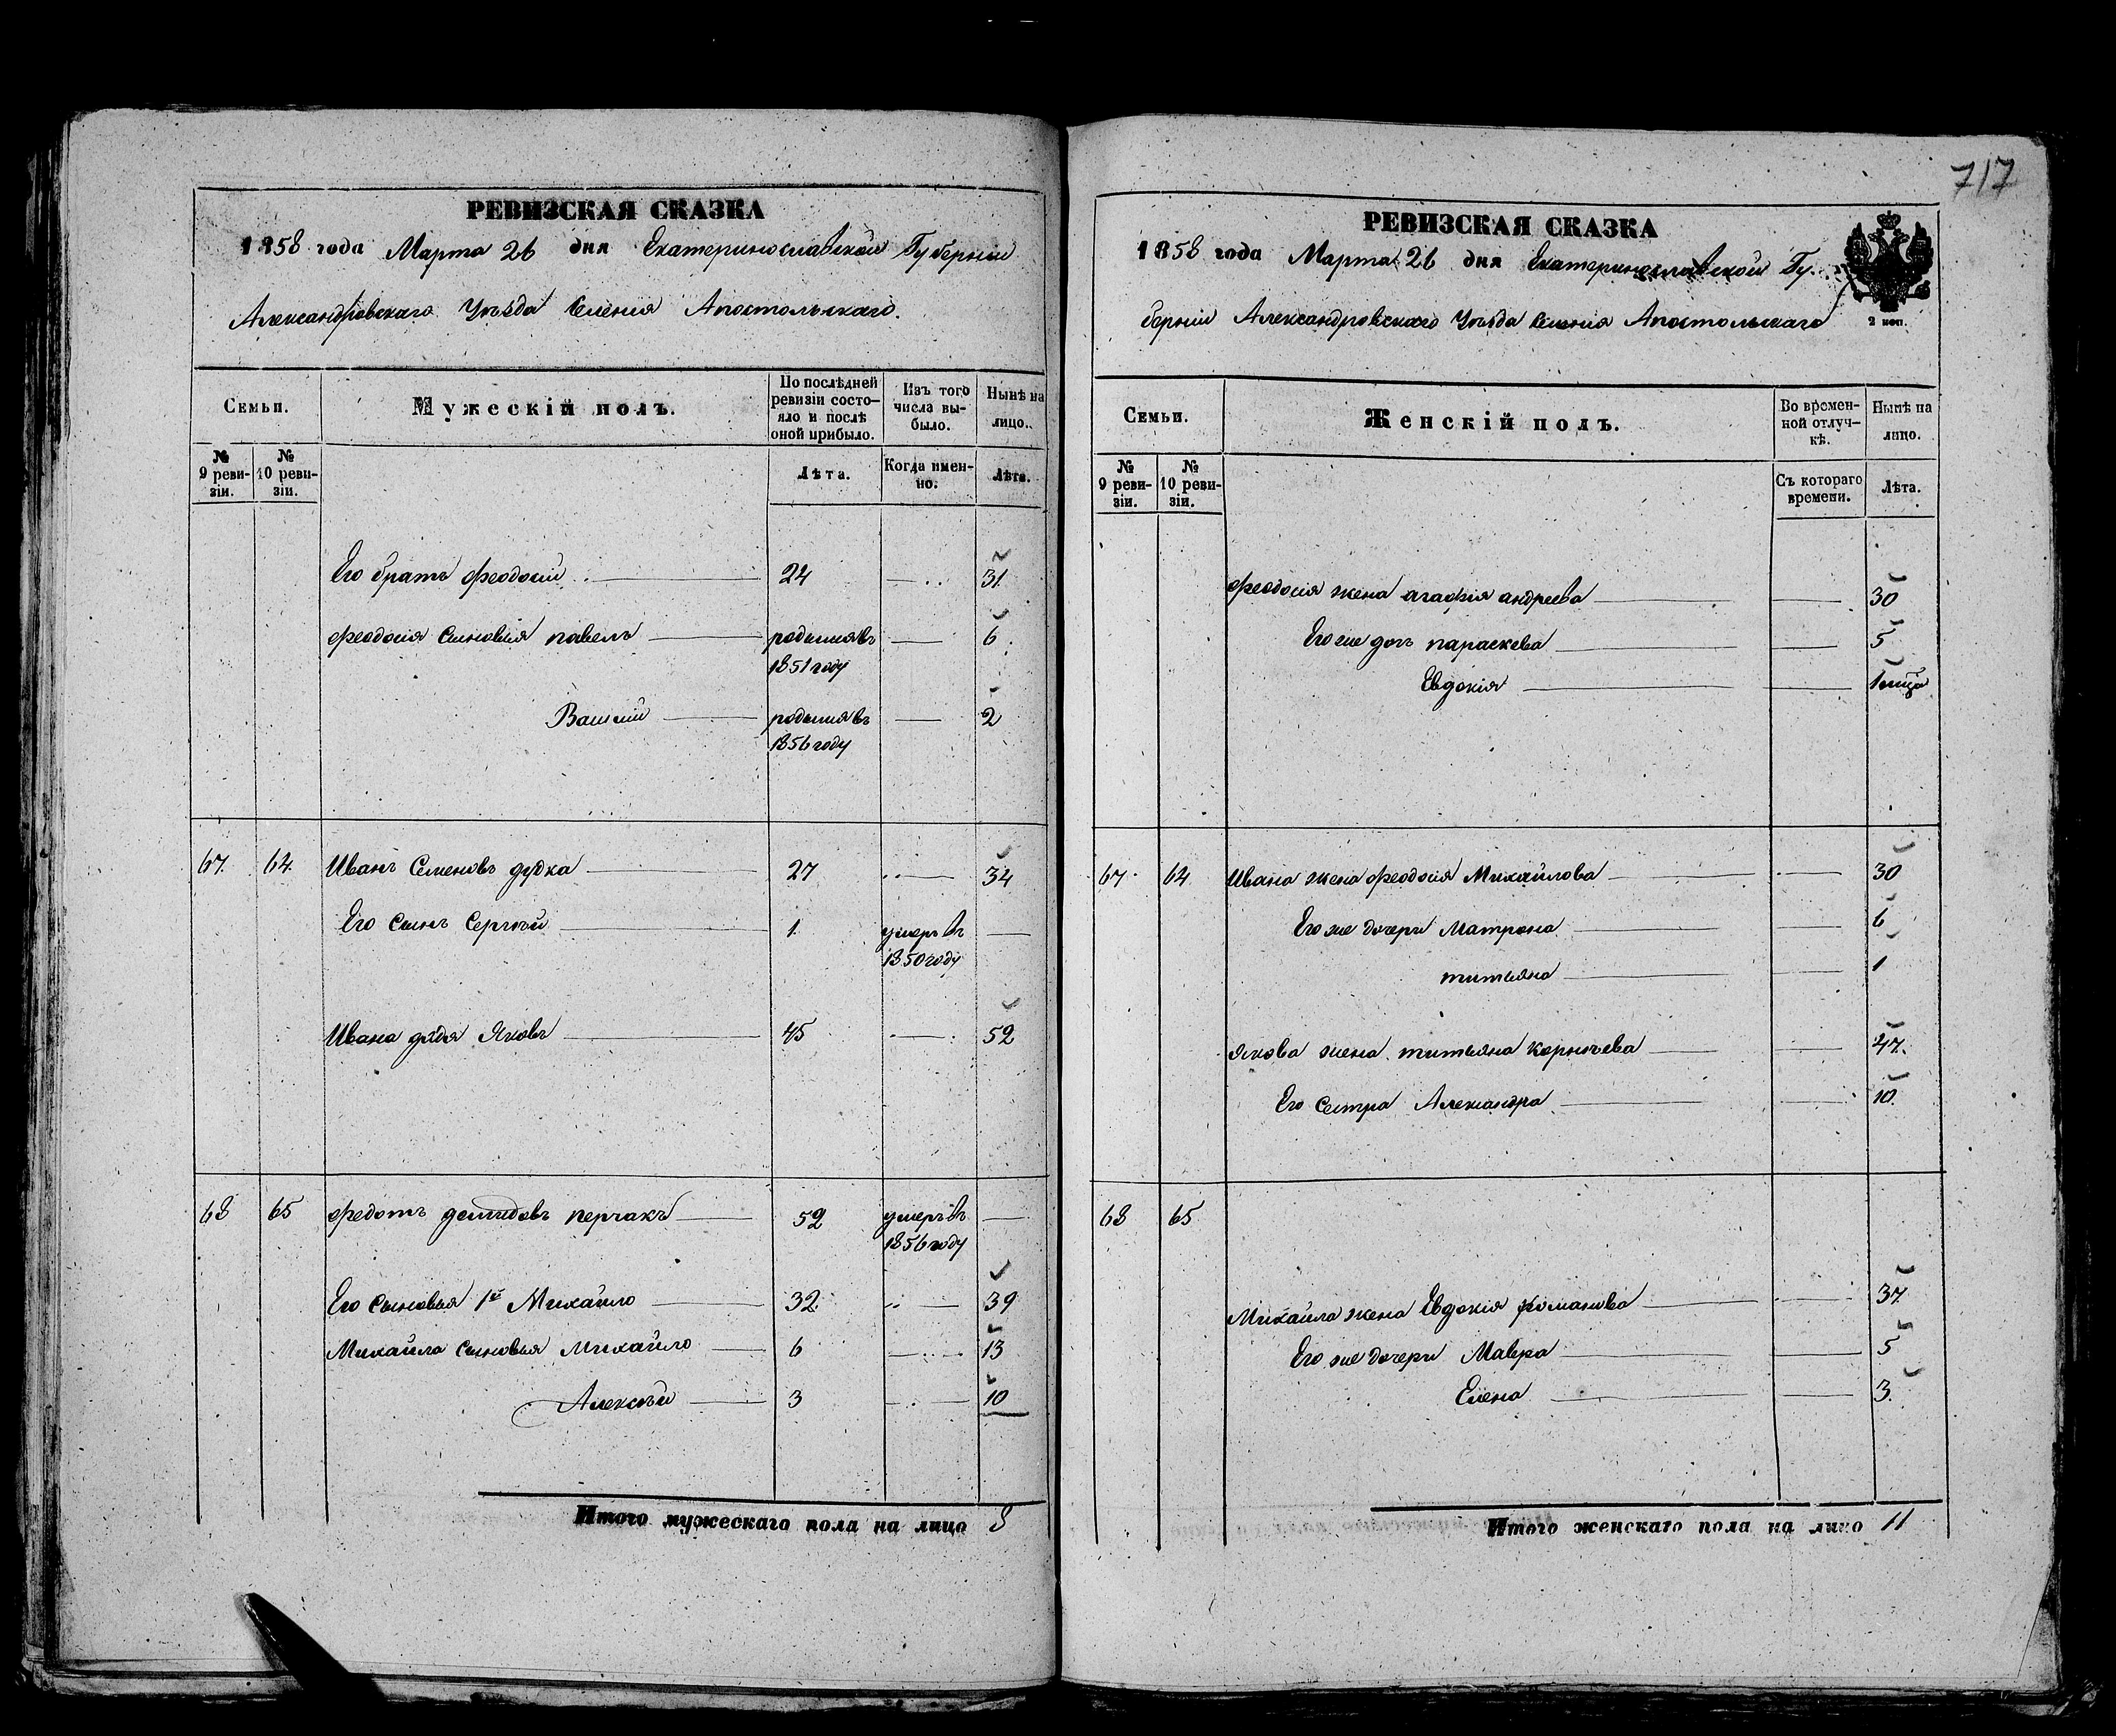 РЕВИЗСКАЯ СКАЗКА
1858 года Марта 26 дня Екатеринославской Губерніи
Александровскаго Уѣзда Селенія Апостольскаго.
Семьи.
Мужескій полъ.
По послѣдней ревизіи состояло и послѣ оной прибыло.
Изъ того числа выбыло.
Нынѣ на лицо.
№ 9 ревизіи.
№ 10 ревизіи.
Лѣта.
Когда именно.
Лѣта.
Его братъ Феодосій 24 31
Феодосія сыновья павелъ родился въ 1851 году 6
Василій родился въ 1856 году 2
67. 64. Иванъ Семеновъ дудка 27 34
Его сынъ Сергѣй 1. умеръ въ 1850 году
Ивана дядя Яковъ 45 52
68 65 Федотъ демидовъ перчакъ 52 умеръ въ 1856 году
Его сыновья 1й Михайло 32 39
Михайла сыновья Михайло 6 13
Алексѣй 3 10
Итого мужескаго пола на лицо 8
717
РЕВИЗСКАЯ СКАЗКА
1858 года Марта 26 дня Екатеринославской Гу-
берніи Александровскаго Уѣзда Селенія Апостольскаго
2 коп.
Семьи.
Женскій полъ.
Во временной отлучкѣ.
Нынѣ на лицо.
№ 9 ревизіи.
№ 10 ревизіи.
Съ котораго времени.
Лѣта.
Феодосія жена агафія андреева 30
Его же дочь параскева 5
Евдокія 1
67. 64 Ивана жена Феодосія Михайлова 30
Его же дочери Матрона 6
титьяна 1
Якова жена титьяна Корнѣева 47.
Его сестра Александра 10.
68 65
Михайла жена Евдокія Романова 37
Его же дочери Мавра 5
Елена 3.
Итого женскаго пола на лицо 11